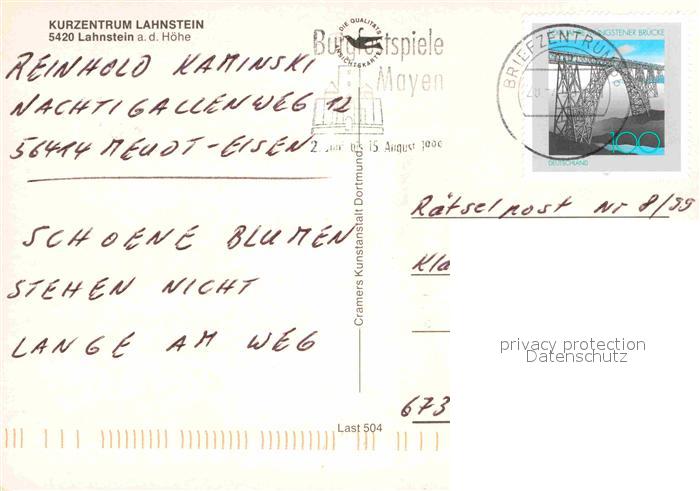 KURZENTRUM LAHNSTEIN
5420 Lahnstein a. d. Höhe
REINHOLD KAMINSKI
NACHTIGALLENWEG 12
56414 MEUDT-EISEN
SCHOENE BLUMEN
STEHEN NICHT
LANGE AM WEG
DIE QUALITÄTS
ANSICHTSKARTE
Burgfestspiele
Mayen
bis 15. August 1999
Cramers Kunstanstalt Dortmund
Last 504
BRIEFZENTRUM
BRÜCKE
100
DEUTSCHLAND
Rätselpost Nr 8/99
Kla
673
privacy protection
Datenschutz